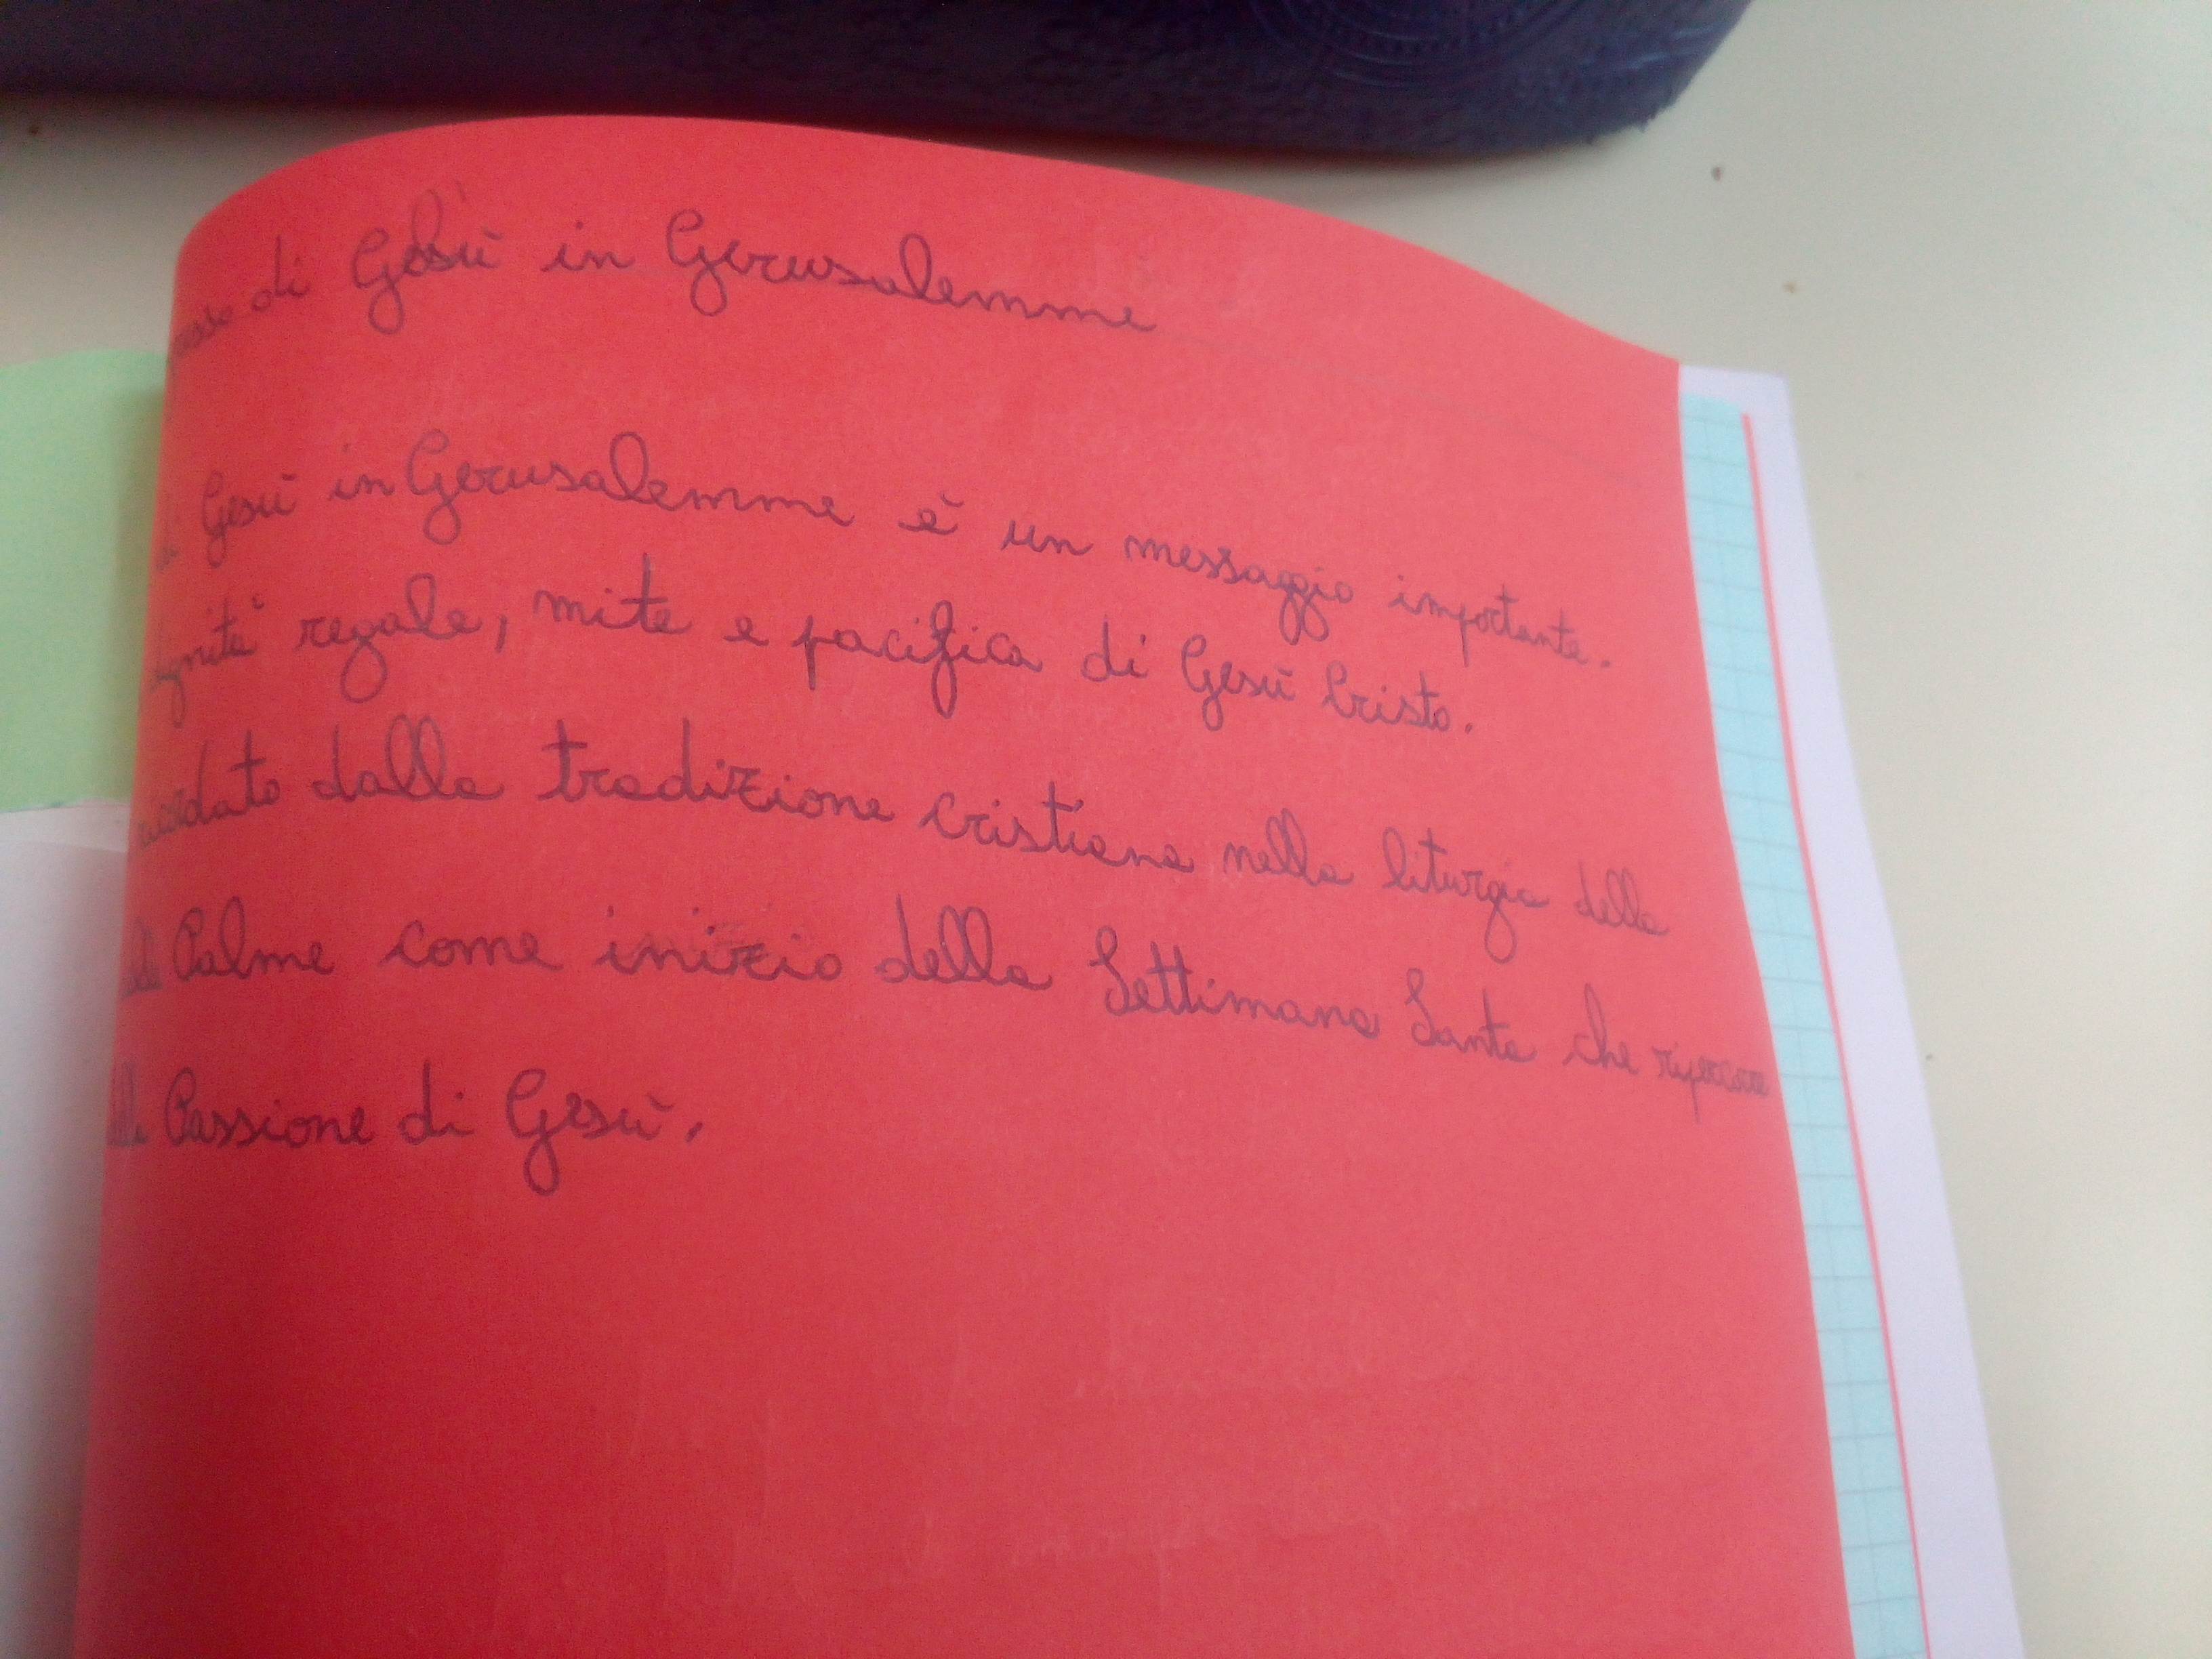 di Gesù in Gerusalemme
Gesù in Gerusalemme è un messaggio importante.
regale, mite e pacifica di Gesù Cristo.
dalla tradizione cristiana nella liturgia della
Palme come inizio della Settimana Santa che ripercorre
Passione di Gesù.